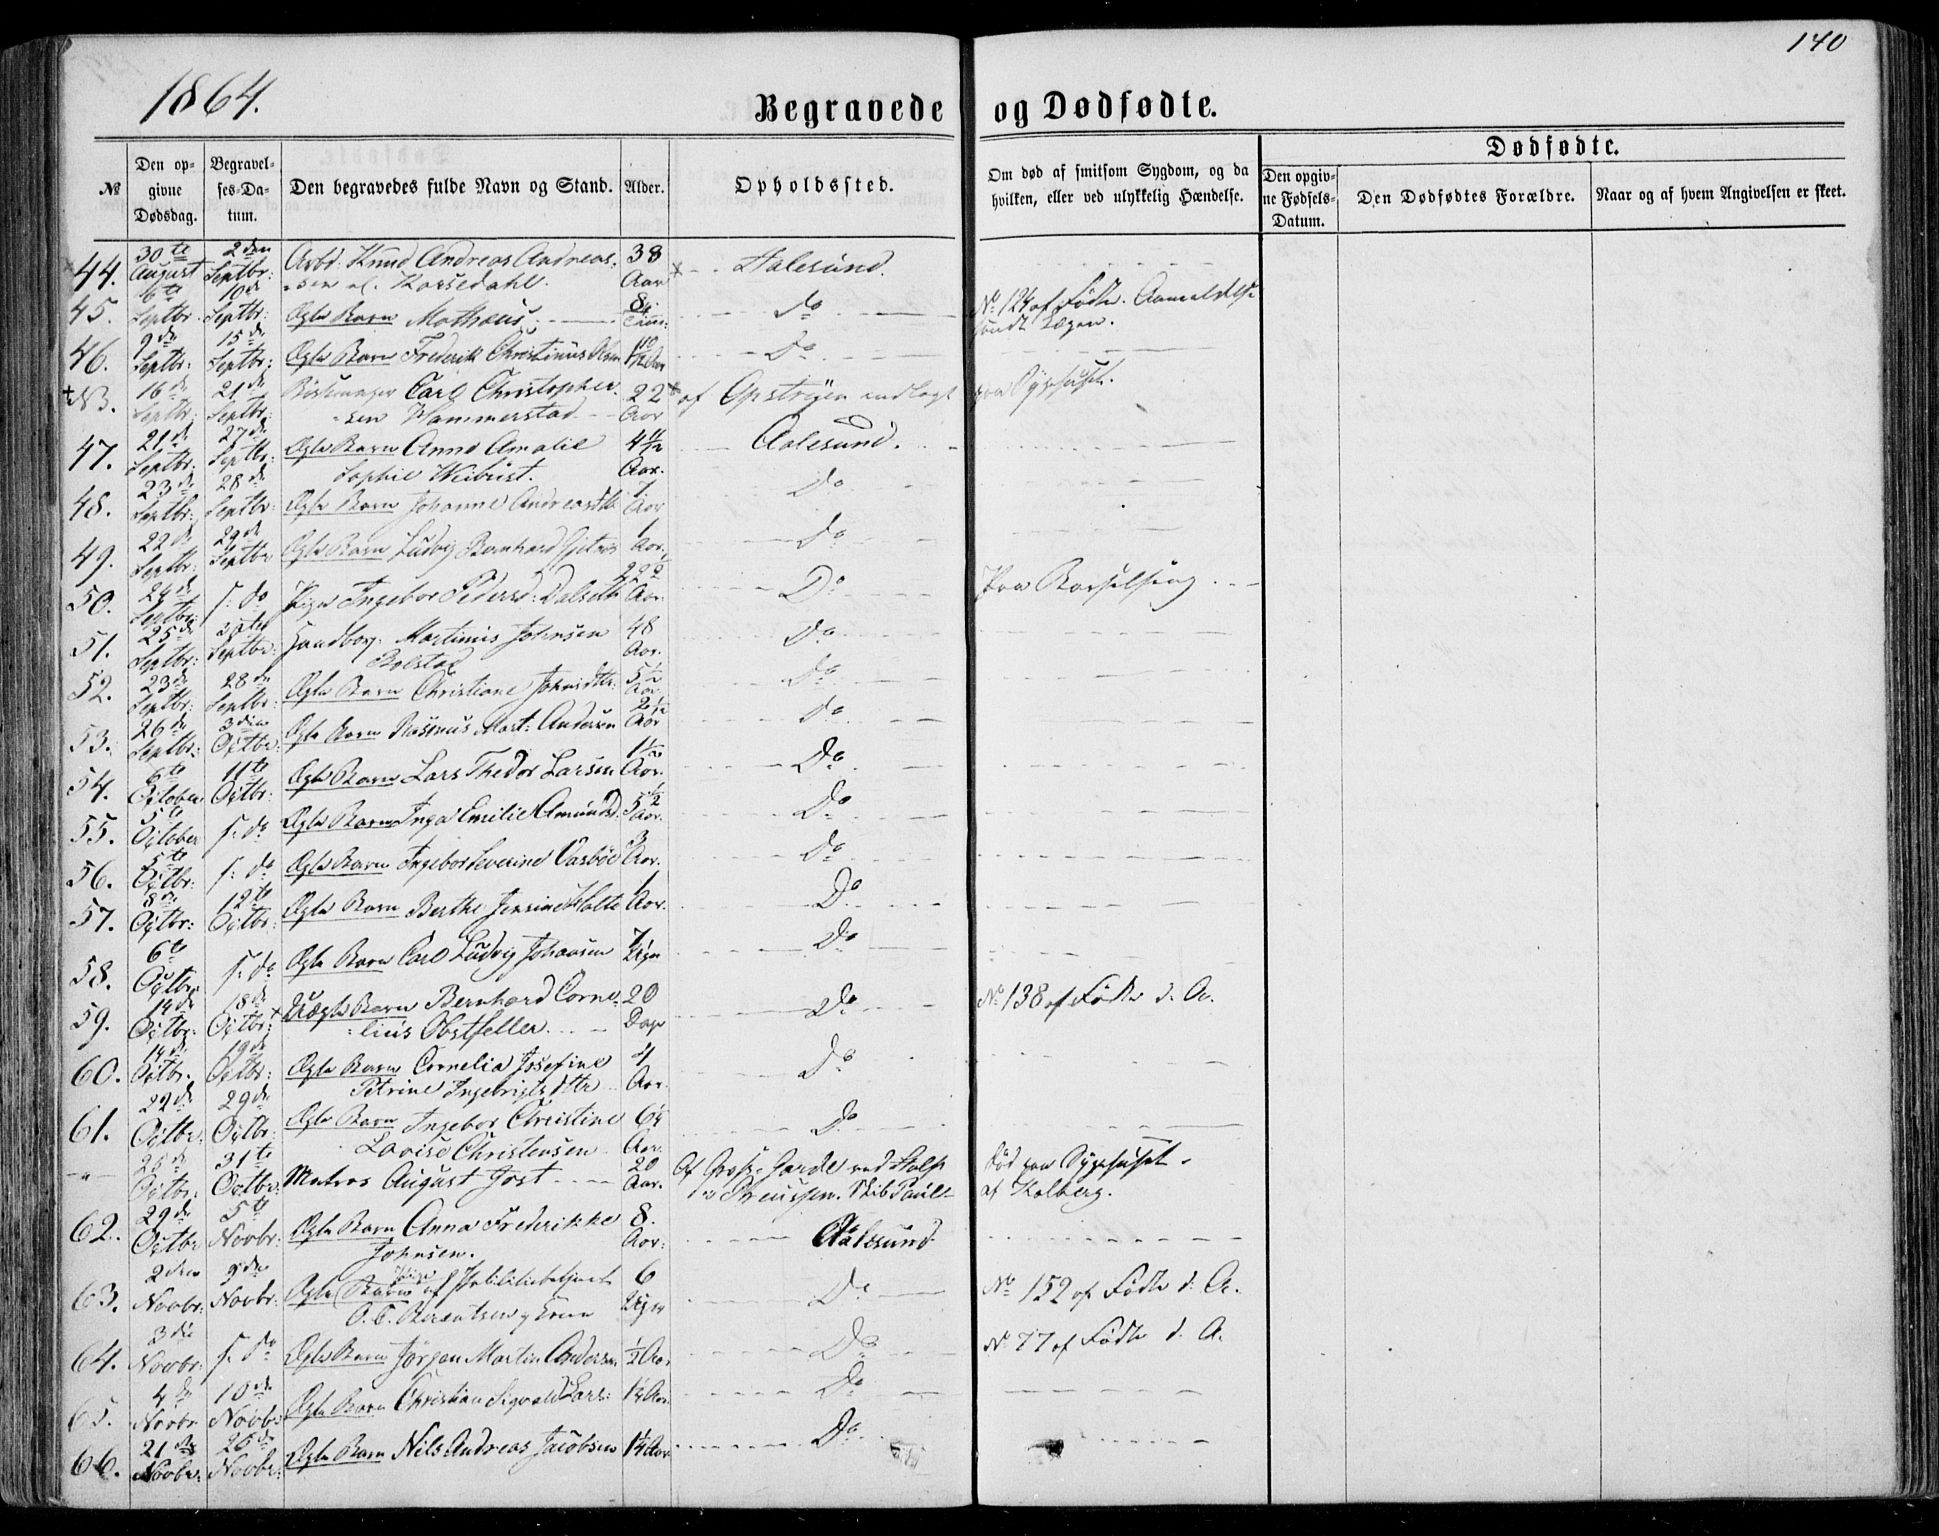 140
1864.
Begravede og Dødfødte.
№
Den opgivne Dødsdag.
Begravelses-Datum.
Den begravedes fulde Navn og Stand.
Alder.
Opholdssted.
Om død af smitsom Sygdom, og da hvilken, eller ved ulykkelig Hændelse.
Dødfødte.
Den opgivne Fødsels-Datum.
Den Dødfødtes Forældre.
Naar og af hvem Angivelsen er skeet.
44. 30te August 2den Septbr: Arbd: Knud Andreas Andreas- 38 Aar Aalesund.
sen Korsedahl.
45. 6te Septbr. 10de Septbr: Ægte Barn Mathæus 8 Do No 124 af Fødte. Anmeldelse
sendt Lægen.
46. 9de Septbr: 15de Septbr: Ægte Barn Frederik Christinus Olsen Do
NB. 16de Septbr: 21de Septbr: Carl Christopher- 22 Aar af Opstryen indlagt paa Sygehuset.
sen Hammerstad
47. 21de Septbr: 27de Septbr: Ægte Barn Anna Amalie 4½ Aar. Aalesund.
Sophie Weibust.
48. 23de Septbr: 28de Septbr: Ægte Barn Johanne Andreasdtr 1 Aar Do
49. 22de Septbr: 29de Septbr Ægte Barn Ludvig Bernhard Gjetnes 1 Aar. Do
50. 24de Septbr: s: do Pige Ingebor Pedersd: Dalsæth Aar. Do Paa Barselseng
51. 25de Septbr: Septbr: Martinus Johnsen 48 Aar. Do
Bolstad
52. 23de Septbr: 28de Septbr: Ægte Barn Christiane Johnsdtr: 5½ Aar Do
53. 26de Septbr: 3die Octbr: Ægte Barn Rasmus Mart: Andersen 2½ Aar Do
54. 6te October 11te Octbr: Ægte Barn Lars Thedor Larsen 1½ Aar. Do
55. 5te October s: do Ægte Barn Inga Emilie Amundsd. 5½ Aar. Do
56. 5te Octbr: s: do Ægte Barn Ingebor Severine Vasbøe 3 Aar. Do
57. 8de Octbr: 12te Octbr: Ægte Barn Berthe Jensine Holte 1 Aar. Do
58. 6te Octbr. s: do Ægte Barn Carl Ludvig Johansen 7 Uger Do
59. 14de Octbr. 18de Octbr: Uægte Barn Bernhard Corne- 20 Dage Do No 138 af Fødte d. A.
lius Obstfeller.
60. 14de Octbr. 19de Octbr: Ægte Barn Cornelia Josefine 4 Aar Do
Petrine Ingebrigtsdtr
61. 22de Octbr: 29de Octbr: Ægte Barn Ingebor Christine 6¼ Aar. Do
Lovise Christensen
-"- Octbr: 31te Octbr: Matros August Jost 20 Aar. Af Gross-Garde ved Stolp død paa Sygehuset
i Preussen. Skib Paul af Kolberg.
62. 29de Octbr 5te Novbr: Ægte Barn Anna Frederikke 8. Aar: Aalesund
Johnsen.
63. 2den Novbr: 9de Novbr: Ægte Barn Pige af Politibetjent 6 Uger Do No 152 af Fødte d: A.
O. C. Berentsen
64. 3die Novbr: s: do Ægte Barn Jørgen Martin Andersen ½ Aar Do No 77 af Fødte d. A.
65. 4de Novbr 10de Novbr: Ægte Barn Christian Sigvald Lars: 1¼ Aar Do
66. 21de Novbr: Novbr: Ægte Barn Nils Andreas Jacobsen 1¼ Aar Do